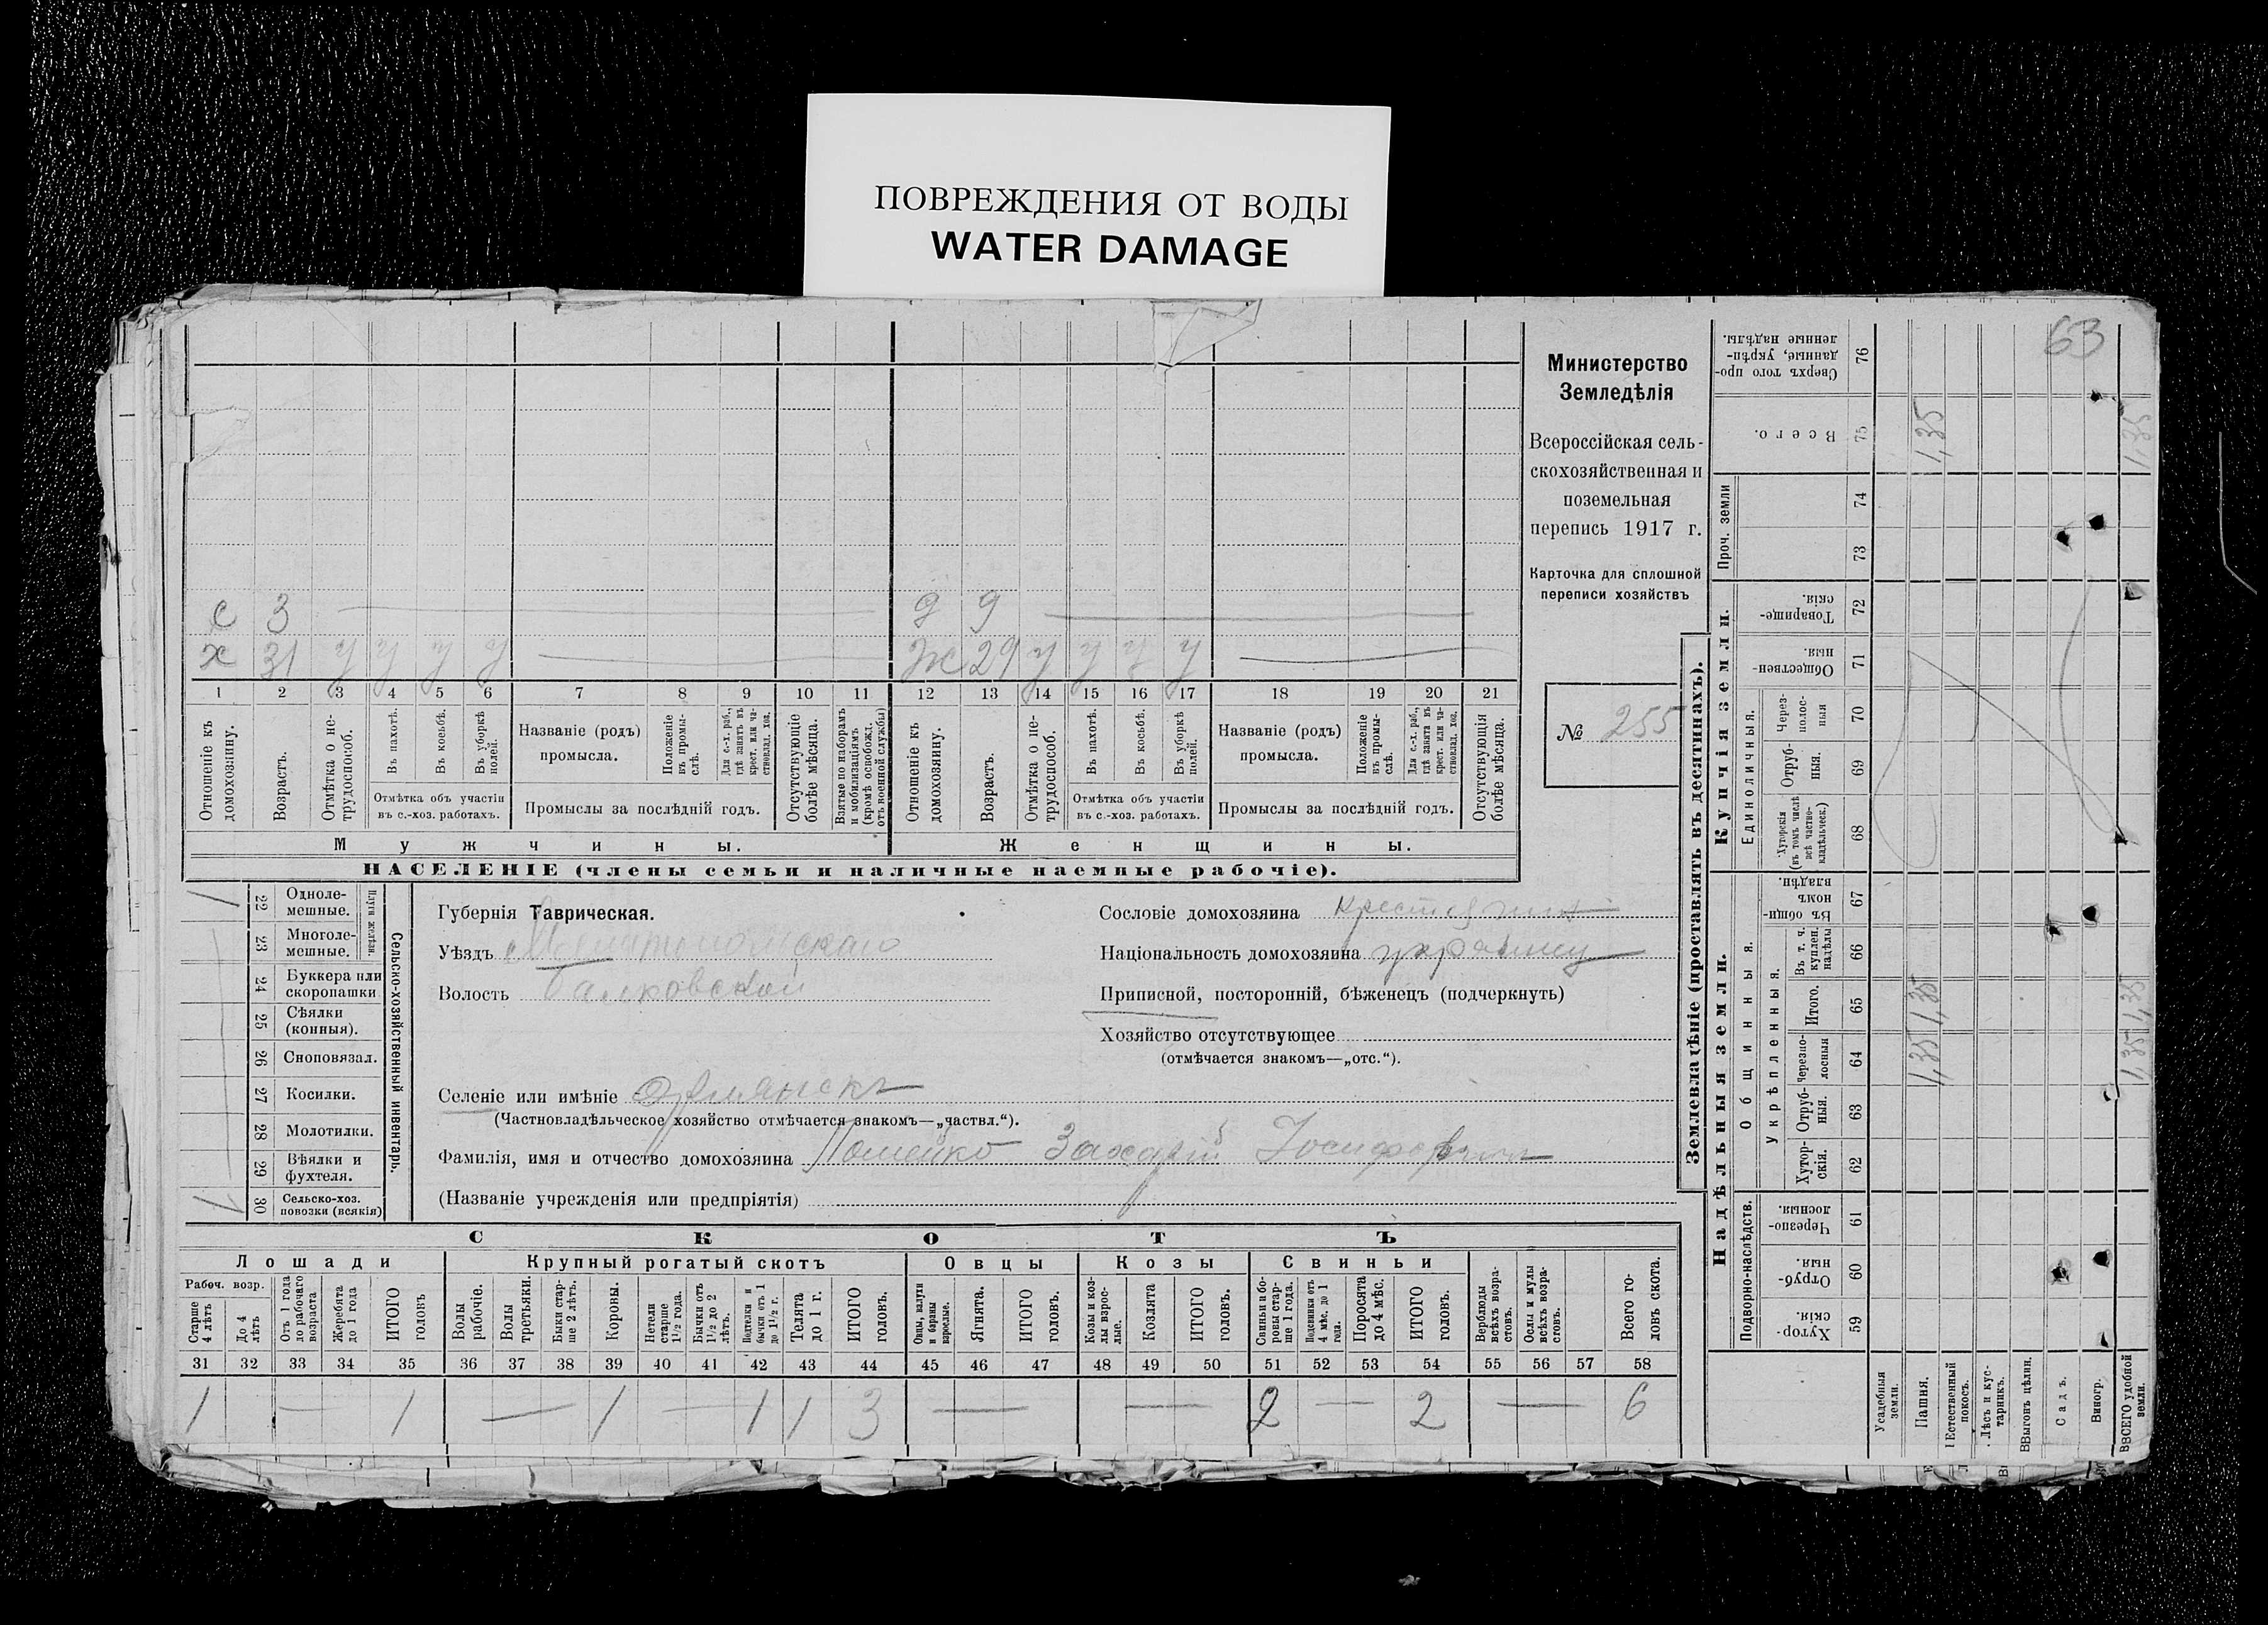 ПОВРЕЖДЕНИЯ ОТ ВОДЫ
WATER DAMAGE
63
Министерство
Земледѣлія
Всероссійская сель-
скохозяйственная и
поземельная
перепись 1917 г.
Карточка для сплошной
переписи хозяйствъ
№ 255
с 3 д 9
х 31 у у у у Ж 29 у у у у
1 2 3 4 5 6 7 8 9 10 11 12 13 14 15 16 17 18 19 20 21
Отношеніе къ домохозяину.
Возрастъ.
Отмѣтка о не-трудоспособ.
Въ пахотѣ.
Въ косьбѣ.
Въ уборкѣ полей.
Отмѣтка объ участіи
въ с.-хоз. работахъ.
Названіе (родъ)
промысла.
Положеніе въ промы-слѣ.
Для с.-х. раб., гдѣ занятъ въ крест. или ча-стновлад. хоз.
Промыслы за послѣдній годъ.
Отсутствующіе болѣе мѣсяца.
Взятые по наборамъ и мобилизаціямъ (кромѣ освобожд. отъ военной службы)
Отношеніе къ домохозяину.
Возрастъ.
Отмѣтка о не-трудоспособ.
Въ пахотѣ.
Въ косьбѣ.
Въ уборкѣ полей.
Отмѣтка объ участіи
въ с.-хоз. работахъ.
Названіе (родъ)
промысла.
Положеніе въ промы-слѣ.
Для с.-х. раб., гдѣ занята въ крест. или ча-стновлад. хоз.
Промыслы за послѣдній годъ.
Отсутствующія болѣе мѣсяца.
Мужчины. Женщины.
НАСЕЛЕНІЕ (члены семьи и наличные наемные рабочіе).
Сельско-хозяйственный инвентарь.
Плуги желѣзн.
22 Одноле-мешные.
23 Многоле-мешные.
24 Буккера или скоропашки
25 Сѣялки (конныя).
26 Сноповязал.
27 Косилки.
28 Молотилки.
29 Вѣялки и фухтеля.
30 Сельско-хоз. повозки (всякія)
Губернія Таврическая.
Уѣздъ Мелитопольскаго
Волость Балковской
Сословіе домохозяина крестянин
Національность домохозяина украинец
Приписной, посторонній, бѣженецъ (подчеркнуть)
Хозяйство отсутствующее
(отмѣчается знакомъ—„отс.“).
Селеніе или имѣніе
(Частновладѣльческое хозяйство отмѣчается знакомъ—„частвл.“).
Фамилія, имя и отчество домохозяина Захарій Іосифовичъ
(Названіе учрежденія или предпріятія)
СКОТЪ
Лошади Крупный рогатый скотъ Овцы Козы Свиньи
Рабоч. возр.
Старше 4 лѣтъ
До 4 лѣтъ
Отъ 1 года до рабочаго возраста
Жеребята до 1 года
ИТОГО головъ
Волы рабочіе.
Волы третьяки.
Быки стар-ше 2 лѣтъ.
Коровы.
Нетели старше 1½ года.
Бычки отъ 1½ до 2 лѣтъ.
Подтелки и бычки отъ 1 до 1½ г.
Телята до 1 г.
ИТОГО головъ.
Овцы, валухи и бараны взрослые.
Ягнята.
ИТОГО головъ.
Козы и коз-лы взрос-лые.
Козлята
ИТОГО головъ.
Свиньи и бо-ровы стар-ше 1 года.
Подсвинки отъ 4 мѣс. до 1 года.
Поросята до 4 мѣс.
ИТОГО головъ.
Верблюды всѣхъ возра-стовъ.
Ослы и мулы всѣхъ возра-стовъ.
Всего го-ловъ скота.
31 32 33 34 35 36 37 38 39 40 41 42 43 44 45 46 47 48 49 50 51 52 53 54 55 56 57 58
1 — 1 — 1 — 1 1 3 — — 2 — 2 — 6
Землевладѣніе (проставлять въ десятинахъ).
Надѣльныя земли.
Купчія земли.
Подворно-наслѣдств.
Общинныя.
Укрѣпленныя.
Единоличныя.
Проч. земли
Хутор-скія. 59
Отруб-ныя. 60
Черезпо-лосныя. 61
Хутор-скія. 62
Отруб-ныя. 63
Черезпо-лосныя 64
Итого. 65
Въ т. ч. куплен. надѣлы 66
Въ общин-номъ владѣн. 67
Хуторскія (въ томъ числѣ всѣ частно-владѣльческ.) 68
Отруб-ныя. 69
Через-полос-ныя 70
Обществен-ныя. 71
Товарище-скія. 72
73
74
Всего. 75
Сверхъ того про-данные, укрѣп-ленные надѣлы. 76
Усадебныя земли.
Пашня. 1,35 1,35 1,35
Естественный покосъ.
Лѣсъ и кус-тарникъ.
Выгонъ цѣлин.
Садъ.
Виногр.
ВСЕГО удобной земли. 1,35 1,35 1,35